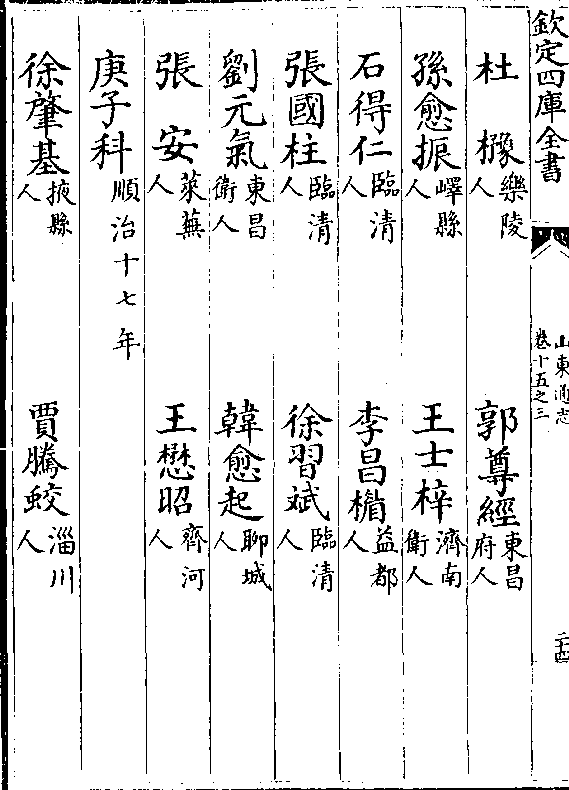 欽定四庫全書
山東通志
卷十五之三
二十四
杜櫞樂陵人 郭尊經東昌府人
孫愈振嶧縣人 王士梓濟南衛人
石得仁臨清人 李昌楣益都人
張國柱臨清人 徐習斌臨清人
劉元氣東昌衛人 韓愈起聊城人
張安萊蕪人 王懋昭齊河人
庚子科順治十七年
徐肇基掖縣人 賈騰蛟淄川人